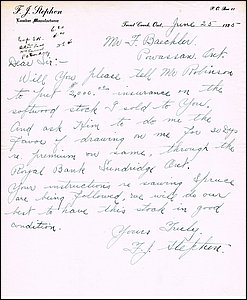 F. J. Stephen
Lumber Manufacturer
P.O. Box 11
Trout Creek, Ont. June 25 1935
Mr F. Baechler.
Powassan, Ont.
Dear Sir:-
Will you please tell Mr Robinson
to put $2,000.00 insurance on the
softwood stock I sold to you.
And ask Him to do me the
favor of drawing on me for 30 Dys
re, premium on same, through the
Royal Bank Sundridge Ont.
Your instructions re sawing Spruce
are being followed, we will do our
best to have this stock in good
condition.
Yours Truly.
F. J. Stephen.